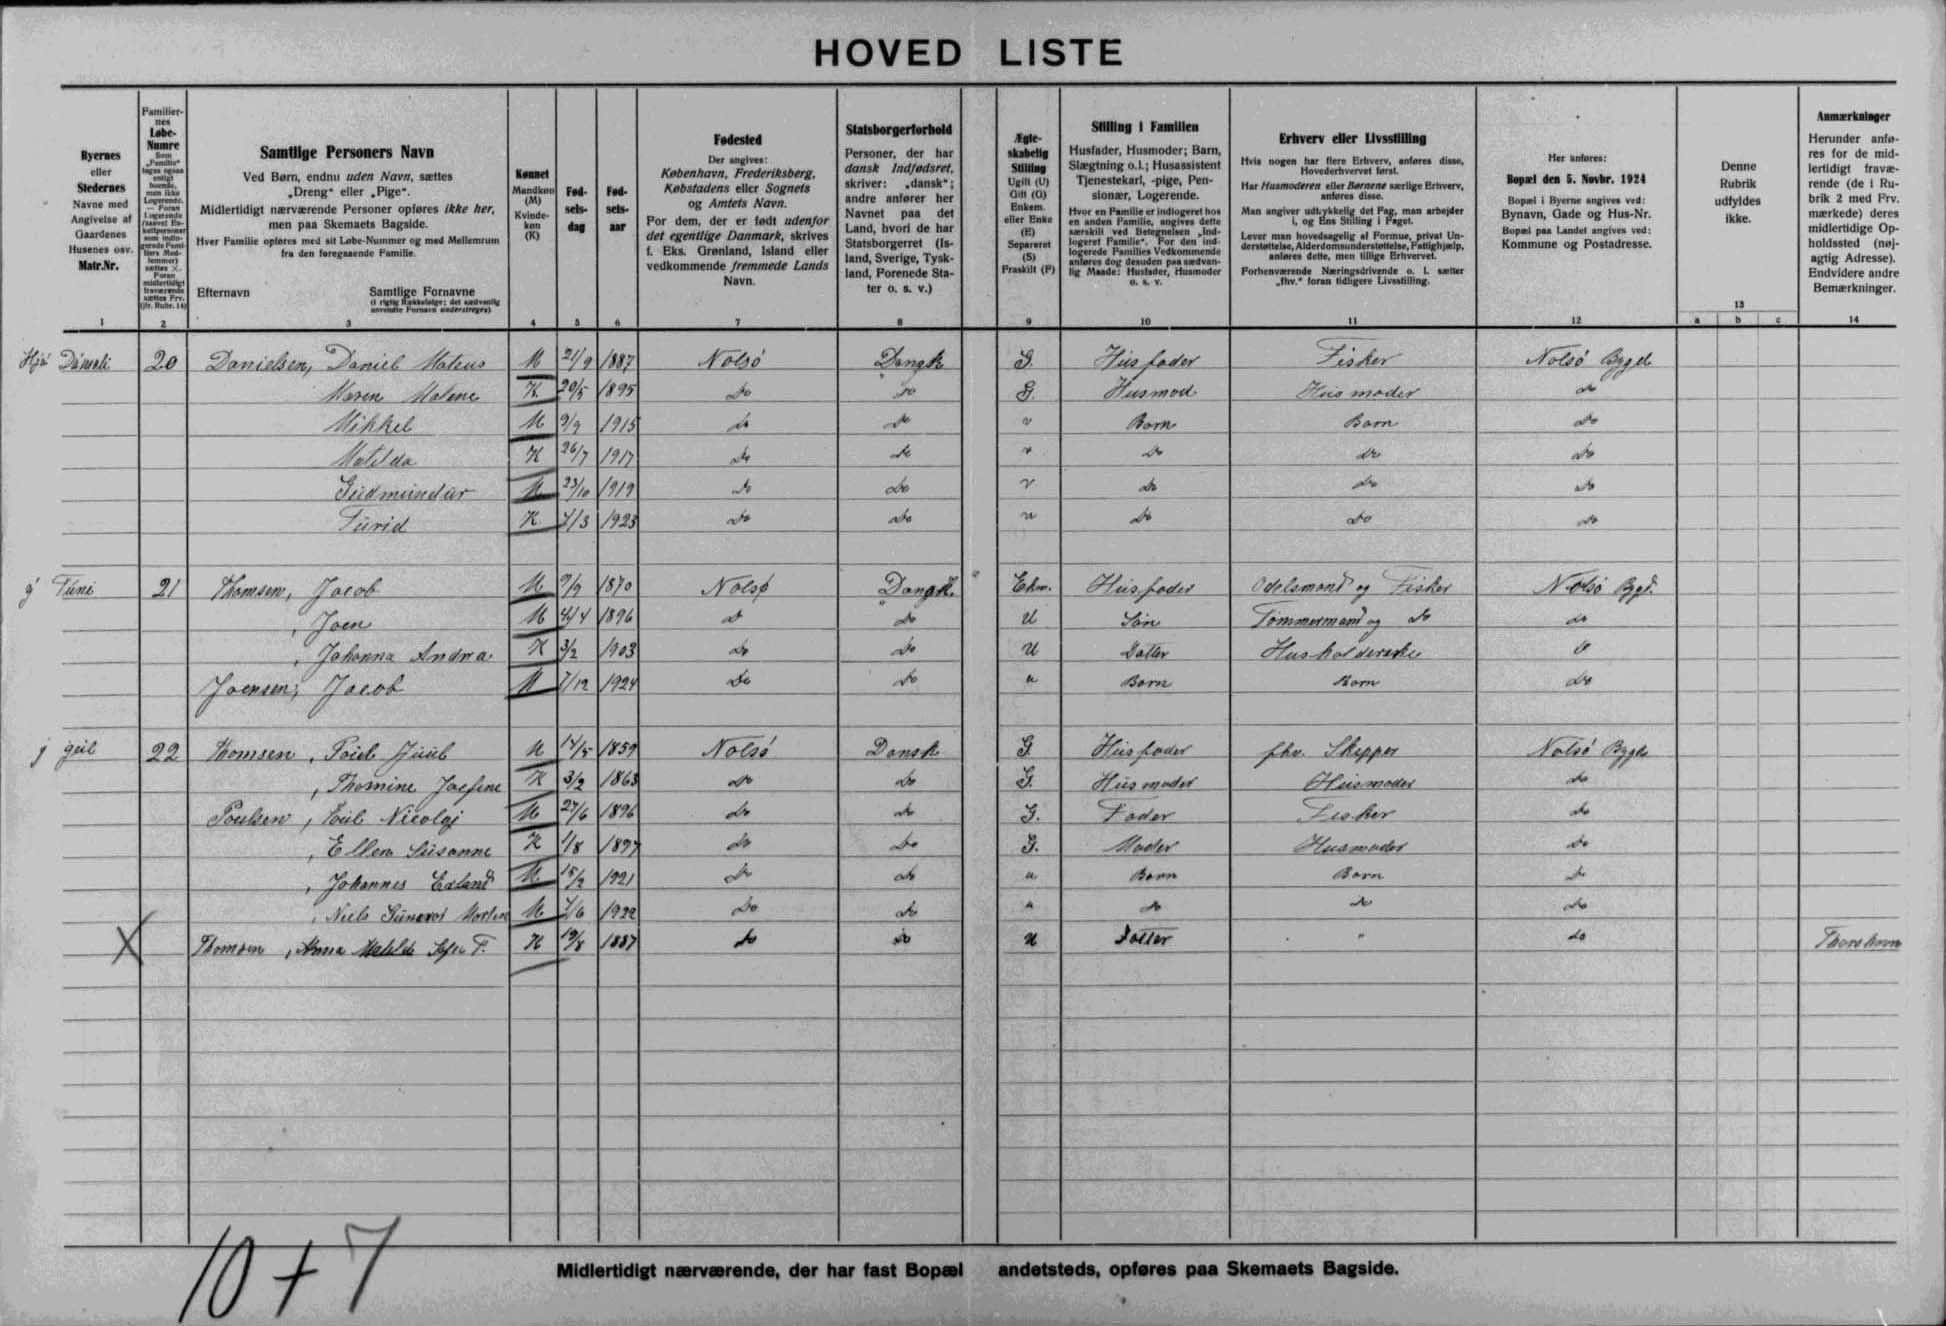 HOVED LISTE
Byernes
eller
Stedernes
Navne med
Angivelse af
Gaardenes
Husenes osv.
Matr.Nr.
1
Familier-
nes
Løbe-
Numre
2
Samtlige Personers Navn
Ved Børn, endnu uden Navn, sættes
„Dreng“ eller „Pige“.
Midlertidigt nærværende Personer opføres ikke her,
men paa Skemaets Bagside.
Hver Familie opføres med sit Løbe-Nummer og med Mellemrum
fra den foregaaende Familie.
Efternavn Samtlige Fornavne
(i rigtig Rækkefølge; det sædvanlig
anvendte Fornavn understreges)
3
Kønnet
Mandkøn
(M)
Kvinde-
køn
(K)
4
Fød-
sels-
dag
5
Fød-
sels-
aar
6
Fødested
Der angives:
København, Frederiksberg,
Købstadens eller Sognets
og Amtets Navn.
For dem, der er født udenfor
det egentlige Danmark, skrives
f. Eks. Grønland, Island eller
vedkommende fremmede Lands
Navn.
7
Statsborgerforhold
Personer, der har
dansk Indfødsret,
skriver: „dansk“;
andre anfører her
Navnet paa det
Land, hvori de har
Statsborgerret (Is-
land, Sverige, Tysk-
land, Forenede Sta-
ter o. s. v.)
8
Ægte-
skabelig
Stilling
Ugift (U)
Gift (G)
Enkem.
eller Enke
(E)
Separeret
(S)
Fraskilt (F)
9
Stilling i Familien
Husfader, Husmoder; Barn,
Slægtning o.l.; Husassistent
Tjenestekarl, -pige, Pen-
sionær, Logerende.
Hvor en Familie er indlogeret hos
en anden Familie, angives dette
særskilt ved Betegnelsen „Ind-
logeret Familie“. For den ind-
logerede Families Vedkommende
anføres dog desuden paa sædvan-
lig Maade: Husfader, Husmoder
o. s. v.
10
Erhverv eller Livsstilling
Hvis nogen har flere Erhverv, anføres disse,
Hovederhvervet først.
Har Husmoderen eller Børnene særlige Erhverv,
anføres disse.
Man angiver udtrykkelig det Fag, man arbejder
i, og Ens Stilling i Faget.
Lever man hovedsagelig af Formue, privat Un-
derstøttelse, Alderdomsunderstøttelse, Fattighjælp,
anføres dette, men tillige Erhvervet.
Forhenværende Næringsdrivende o. l. sætter
„fhv.“ foran tidligere Livsstilling.
11
Her anføres:
Bopæl den 5. Novbr. 1924
Bopæl i Byerne angives ved:
Bynavn, Gade og Hus-Nr.
Bopæl paa Landet angives ved:
Kommune og Postadresse.
12
Denne
Rubrik
udfyldes
ikke.
13
a b c
Anmærkninger
Herunder anfø-
res for de mid-
lertidigt fravæ-
rende (de i Ru-
brik 2 med Frv.
mærkede) deres
midlertidige Op-
holdssted (nøj-
agtig Adresse).
Endvidere andre
Bemærkninger.
14
20 Danielsen, Daniel Mateus M 21/9 1887 Nolsø Dansk G. Husfader Fisker Nolsø Bygd
Maren Malene K 20/5 1895 Do Do G. Husmod Husmoder do
Mikkel M 9/9 1915 do do Barn Barn do
Matilda K 26/7 1917 do do do do do
Gudmundur M 23/10 1919 do do do do do
Turid K 7/3 1923 do do do do do
21 Thomsen, Jacob M 9/9 1870 Nolsø Dansk. Ekm. Husfader Odelsmand og Fisker Nolsø Bygd.
, Joen M 4/4 1896 do do U Søn Tømmermand og do do
, Johanna Andrea K 3/2 1903 do do U Datter Husholderske
Joensen, Jacob M 7/12 1924 do do u Barn Barn do
22 Thomsen, Poul Juul M 14/5 1859 Nolsø Dansk G. Husfader fhv. Skipper Nolsø Bygd
, Thomine Josefine K 3/2 1863 do do G. Husmoder Husmoder do
Poulsen, Poul Nicolaj M 27/6 1896 do do G. Fader Fisker do
, Ellen Susanne K 1/8 1897 do do G. Moder Husmoder do
, Johannes Erland M 15/2 1921 do do u Barn Barn do
, Niels Morten M 7/6 1922 do do " do do do
X Thomsen, Anna K 19/8 1887 do do U Datter " do Thorshavn
Midlertidigt nærværende, der har fast Bopæl andetsteds, opføres paa Skemaets Bagside.
10 + 7